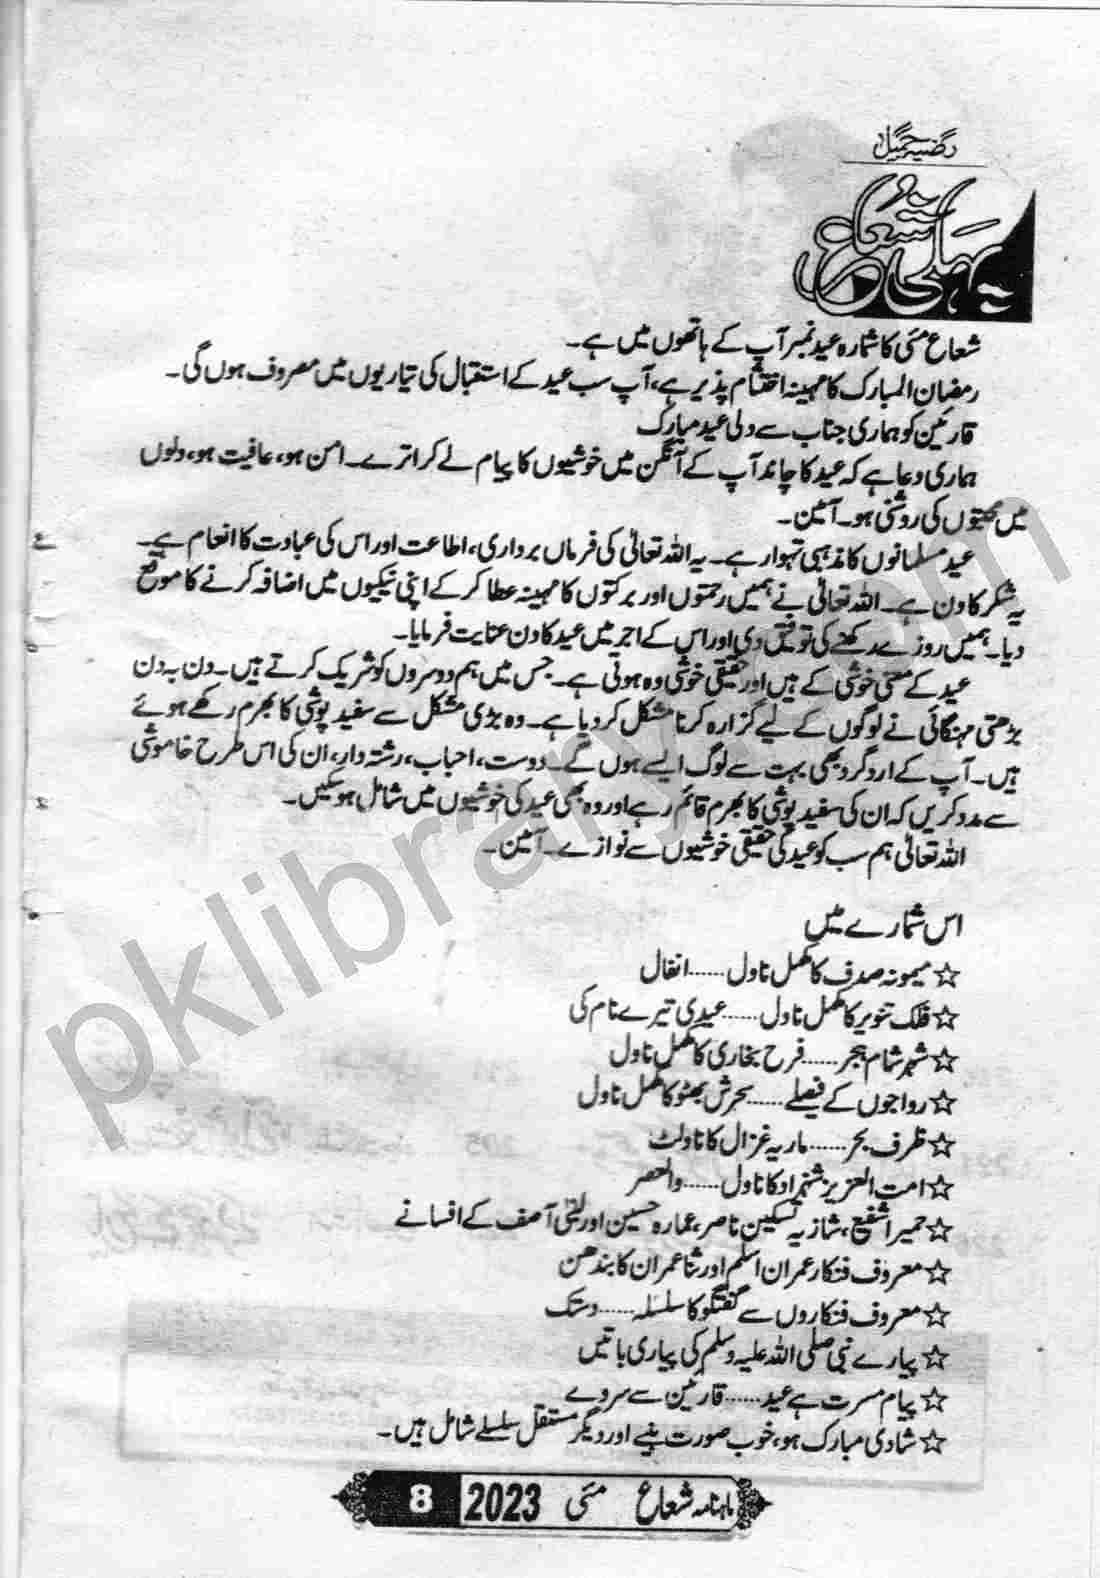 رضیہ جمیل
پہلی شعاع
شعاع مئی کا شمارہ عید نمبر آپ کے ہاتھوں میں ہے۔
رمضان المبارک کا مہینہ اختتام پذیر ہے، آپ سب عید کے استقبال کی تیاریوں میں مصروف ہوں گی۔
قارئین کو ہماری جناب سے دلی عید مبارک
ہماری دعا ہے کہ عید کا چاند آپ کے آنگن میں خوشیوں کا پیام لے کر اترے۔ امن ہو، عافیت ہو، دلوں
میں محبتوں کی روشنی ہو۔ آمین۔
عید مسلمانوں کا مذہبی تہوار ہے۔ یہ اللہ تعالیٰ کی فرماں برداری، اطاعت اور اس کی عبادت کا انعام ہے۔
یہ شکر کا دن ہے۔ اللہ تعالیٰ نے ہمیں رحمتوں اور برکتوں کا مہینہ عطا کر کے اپنی نیکیوں میں اضافہ کرنے کا موقع
دیا۔ ہمیں روزے رکھنے کی توفیق دی اور اس کے اجر میں عید کا دن عنایت فرمایا۔
عید کے معنی خوشی کے ہیں اور حقیقی خوشی وہ ہوتی ہے۔ جس میں ہم دوسروں کو شریک کرتے ہیں۔ دن بہ دن
بڑھتی مہنگائی نے لوگوں کے لیے گزارہ کرنا مشکل کر دیا ہے۔ وہ بڑی مشکل سے سفید پوشی کا بھرم رکھے ہوئے
ہیں۔ آپ کے ارد گرد بھی بہت سے لوگ ایسے ہوں گے۔ دوست، احباب، رشتہ دار، ان کی اس طرح خاموشی
سے مدد کریں کہ ان کی سفید پوشی کا بھرم قائم رہے اور وہ بھی عید کی خوشیوں میں شامل ہو سکیں۔
اللہ تعالیٰ ہم سب کو عید کی حقیقی خوشیوں سے نوازے۔ آمین۔
اس شمارے میں
☆ میمونہ صدف کا مکمل ناول ...... انفال
☆ فلک تنویر کا مکمل ناول ...... عیدی تیرے نام کی
☆ شہر شام ہجر ...... فرح بخاری کا مکمل ناول
☆ رواجوں کے فیصلے ...... سحرش بھٹو کا مکمل ناول
☆ ظرف بحر ...... ماریہ غزال کا ناولٹ
☆ امت العزیز شہزاد کا ناول ...... والعصر
☆ حمیرا شفیع، شازیہ تسکین ناصر، عمارہ حسین اور لبنیٰ آصف کے افسانے
☆ معروف فنکار عمران اسلم اور ثنا عمران کا بندھن
☆ معروف فنکاروں سے گفتگو کا سلسلہ ...... دستک
☆ پیارے نبی صلی اللہ علیہ وسلم کی پیاری باتیں
☆ پیام مسرت ہے عید ...... قارئین سے سروے
☆ شادی مبارک ہو، خوب صورت بنیے اور دیگر مستقل سلسلے شامل ہیں۔
ماہنامہ شعاع مئی 2023 8
pklibrary.com